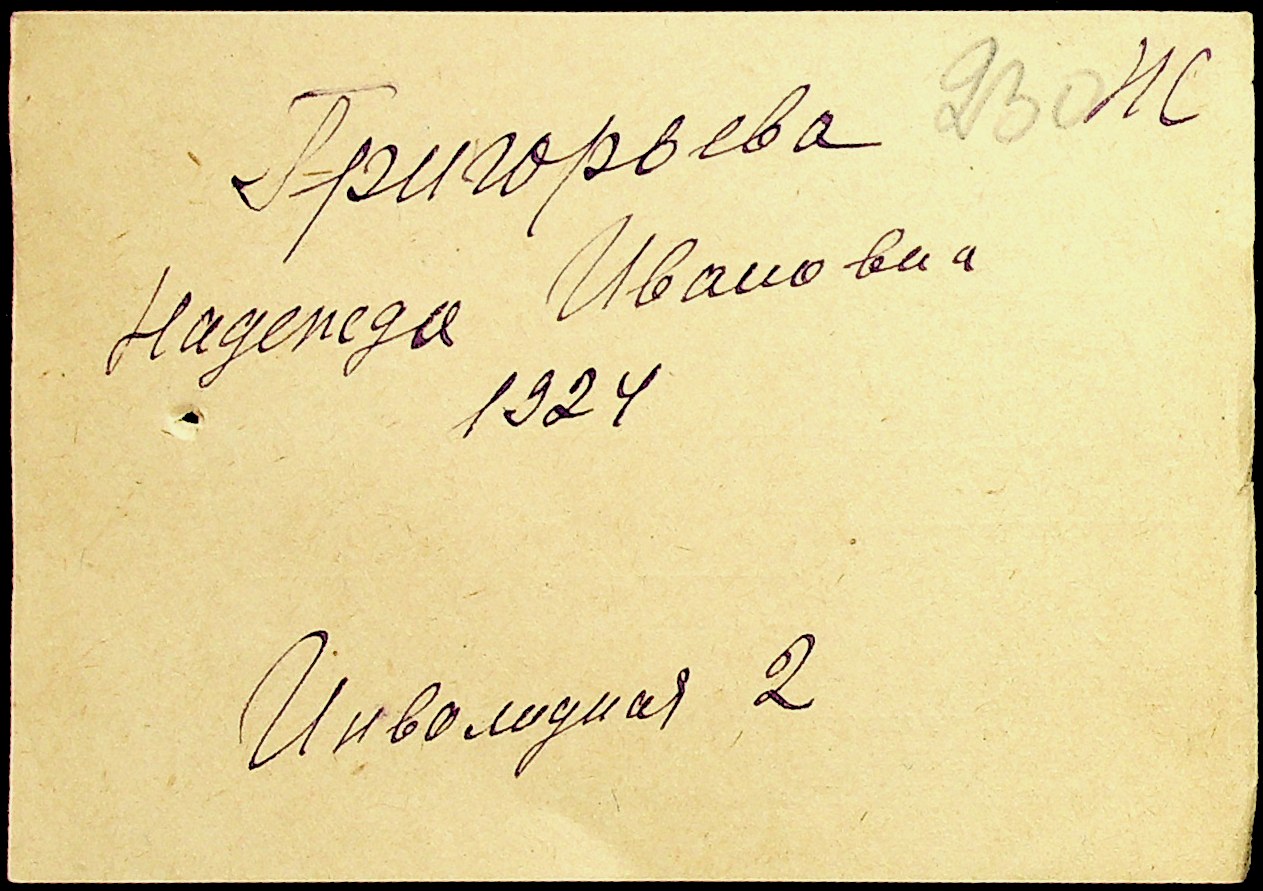 Григорьева
Надежда Ивановна
1924
Инвалидная 2